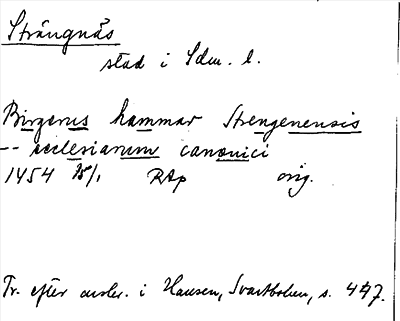 Strängnäs
stad i Sdm. l.
Birgerus hammar Strengenensis
-- ecclesiarum canonici
1454 15/1 RAp orig.
Tr. efter avskr. i Hausen, Svartboken, s. 447.